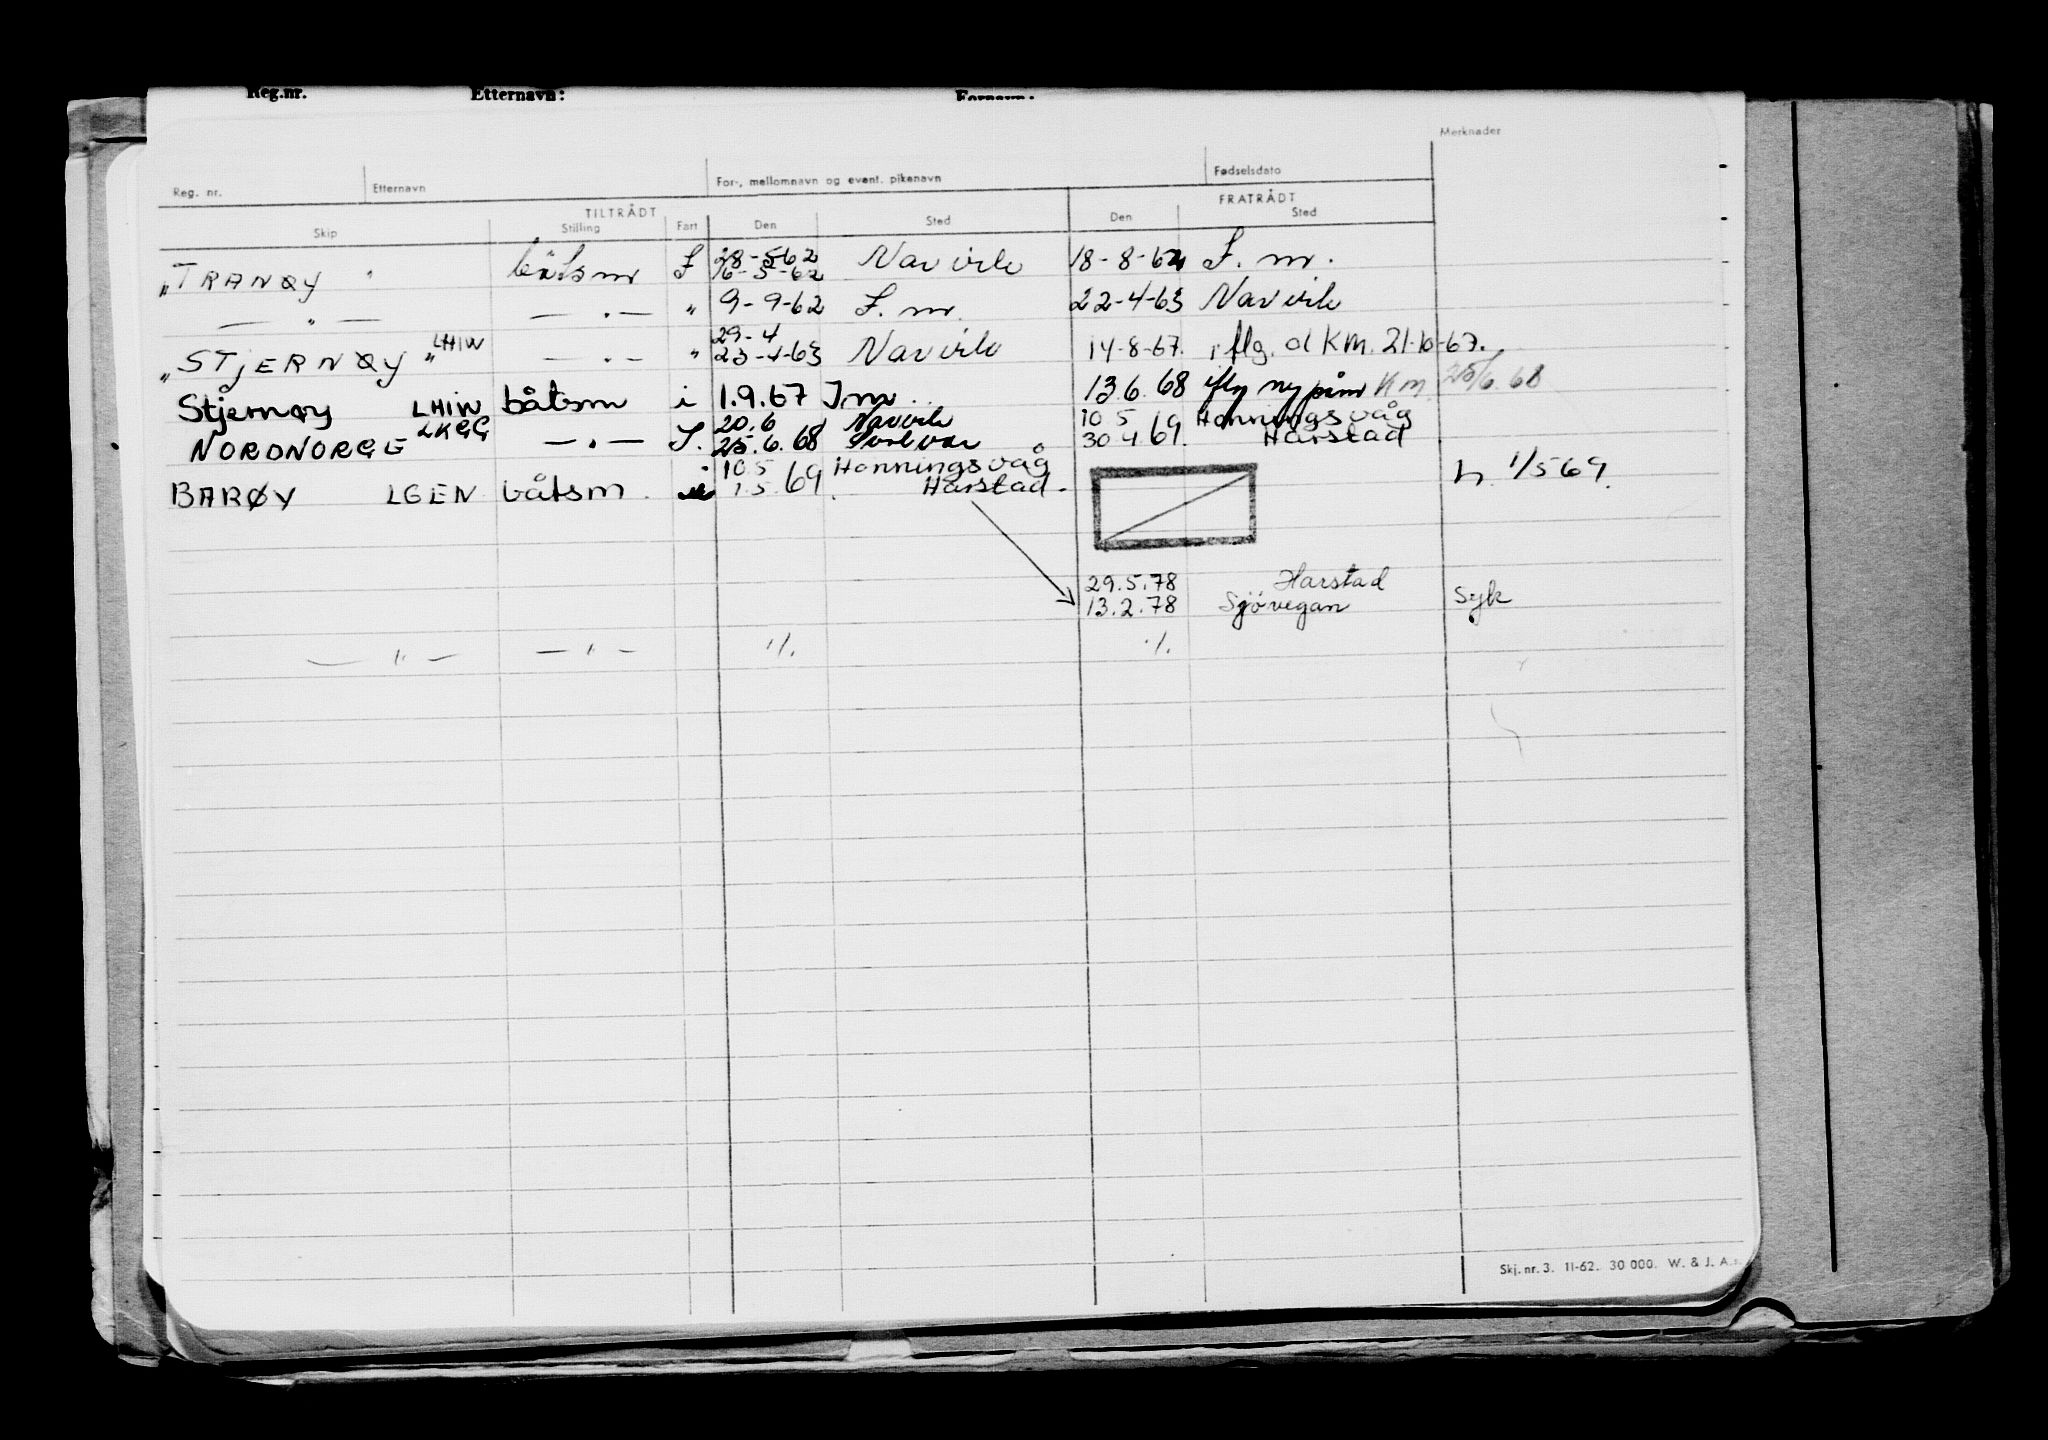 Reg.nr. Etternavn: Fornavn:
Merknader
Reg. nr. Etternavn For-, mellomnavn og event. pikenavn Fødselsdato
TILTRÅDT FRATRÅDT
Skip Stilling Fart Den Sted Den Sted
28-5-62
"TRANØY" båtsm I 16-5-62 Narvik 18-8-62 I. m.
— " — — " — " 9-9-62 I. m. 22-4-63 Narvik
29-4
"STJERNØY" LHIW — " — " 23-4-63 Narvik 14-8-67. iflg. d KM. 21-10-67.
Stjernøy LHIW båtsm i 1.9.67 I m. 13 6. 68 iflg ny påm KM 25/6. 68
20.6 Narvik 10 5 Honningsvåg
NORDNORGE LKGG — " — I. 25.6.68 Svolvær 30 4 69. Harstad
10 5 Honningsvåg
BARØY LGEN båtsm. i 1.5. 69. Harstad. h. 1/5 69.
29.5.78 Harstad
13.2.78 Sjövegan Syk
— " — — " — ./. ./.
Skj. nr. 3. 11-62. 30 000. W. & J. A.